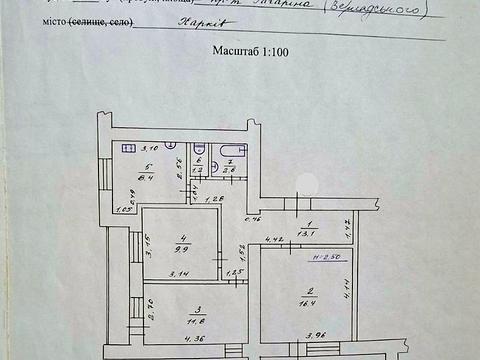 пр-т Гагаріна (Вернадського)
місто (селище, село) Харків
Масштаб 1:100
3,10
5
8.4
2.56
6
1,2
7
2,6
0,49
1,04
1,05
1,28
0,46
1
13.1
1,47
4
9.9
3,15
4,42
1,52
H=2,50
3,14
1,25
2
16.4
4,14
2,70
3
11,8
4,36
3,96